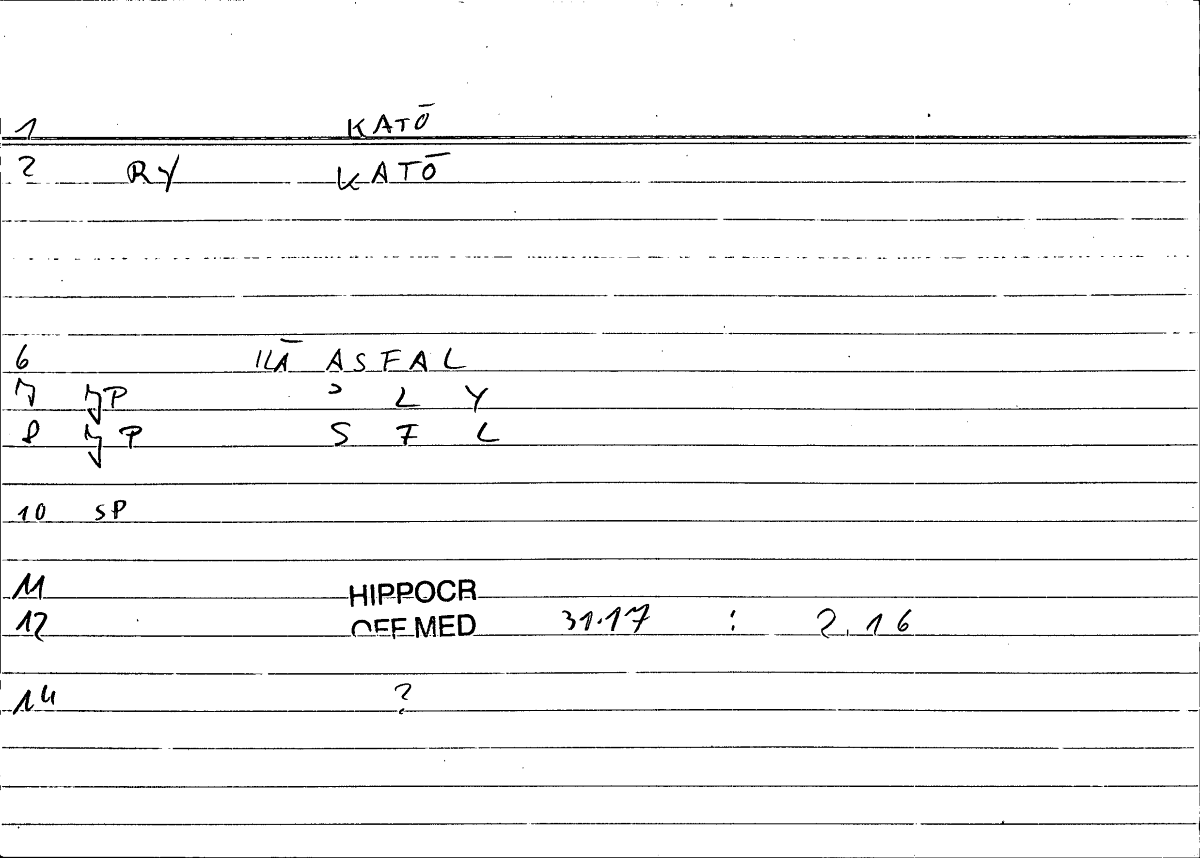 1 KATŌ
2 RY KATŌ
6 ASFAL
7 P L Y
8 P S F L
10 SP
11 HIPPOCR
12 OFF MED 31.17 : 2.16
14 ?